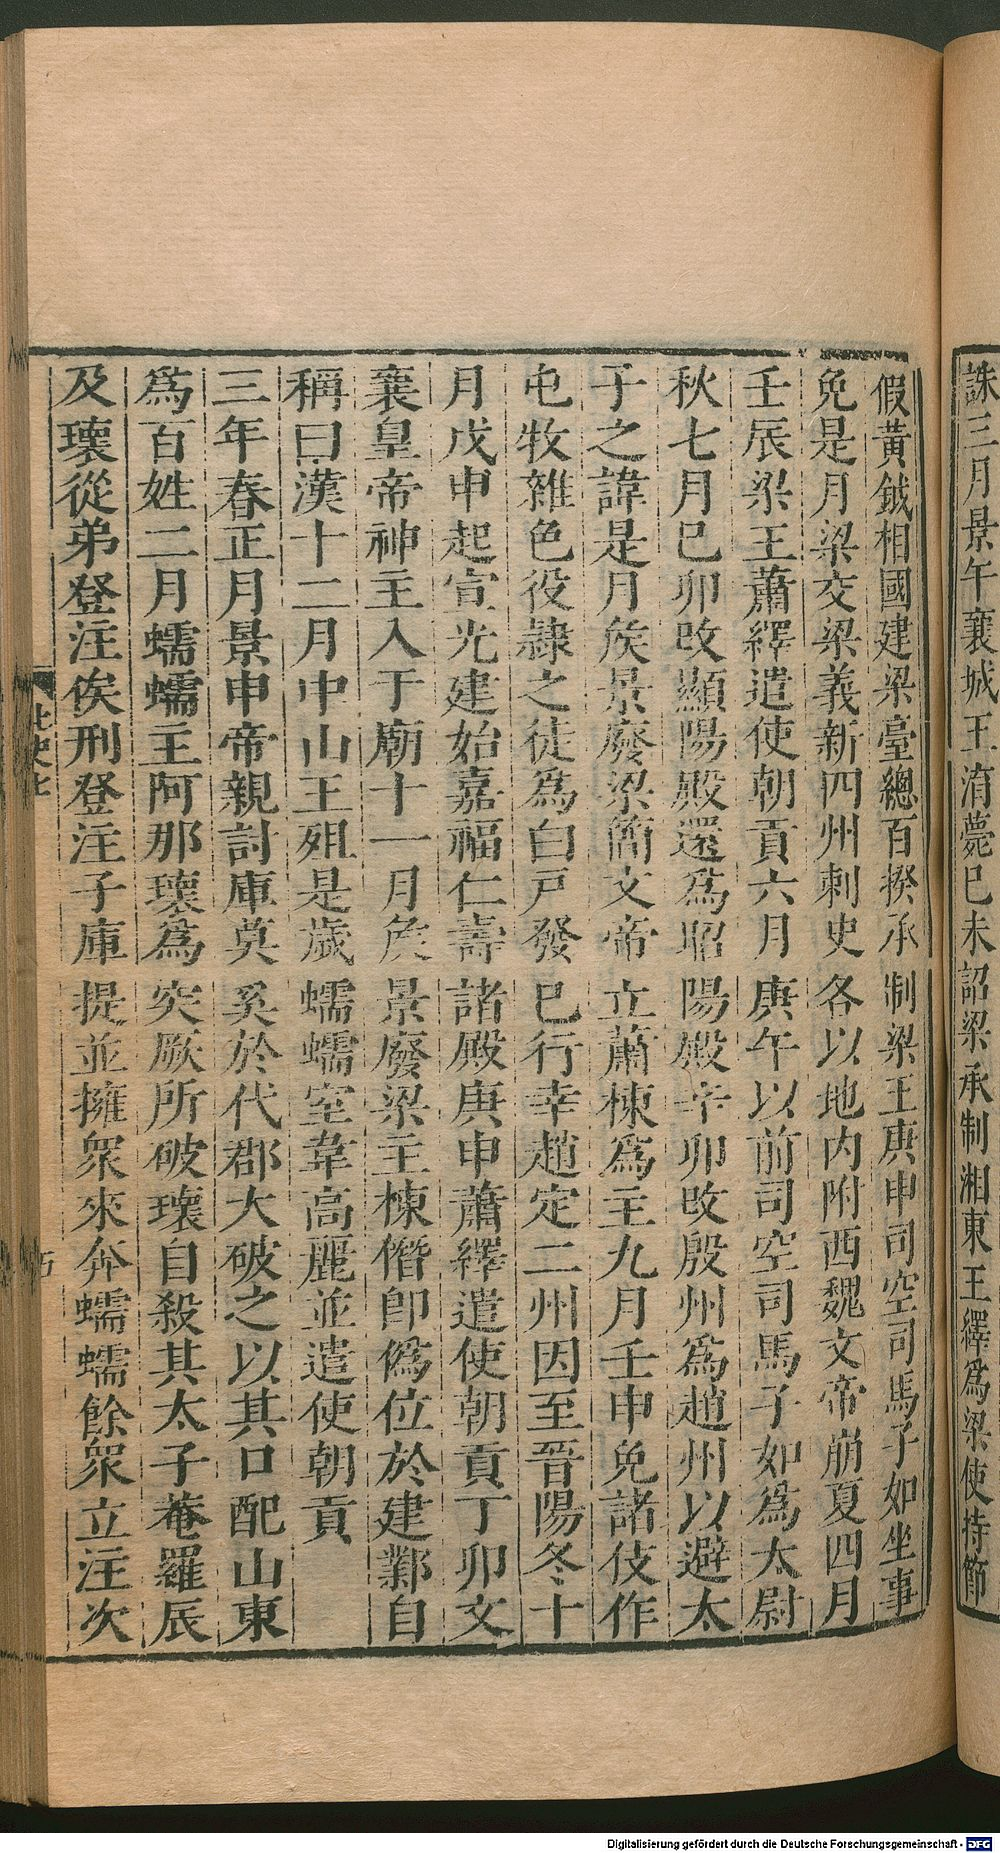 誅三月景午襄城王淯薨巳未詔梁承制湘東王繹爲梁使持節
假黃鉞相國建梁臺總百揆承制梁王庚申司空司馬子如坐事
免是月梁交梁義新四州刺史各以地内附西魏文帝崩夏四月
壬辰梁王蕭繹遣使朝貢六月庚午以前司空司馬子如爲太尉
秋七月巳卯改顯陽殿還爲昭陽殿辛卯改殷州爲趙州以避太
子之諱是月矦景廢梁簡文帝立蕭棟爲主九月壬申免諸伎作
屯牧雜色役隸之徒爲白戸發巳行幸趙定二州因至晉陽冬十
月戊申起宣光建始嘉福仁壽諸殿庚申蕭繹遣使朝貢丁卯文
襄皇帝神主入于廟十一月矦景廢梁主棟僭卽僞位於建鄴自
稱曰漢十二月中山王殂是歲蠕蠕室韋高麗並遣使朝貢
三年春正月景申帝親討庫莫奚於代郡大破之以其口配山東
爲百姓二月蠕蠕主阿那瓌爲突厥所破瓌自殺其太子菴羅辰
及瓌從弟登注俟刑登注子庫提並擁衆來奔蠕蠕餘衆立注次
北史七
五
Digitalisierung gefördert durch die Deutsche Forschungsgemeinschaft - DFG